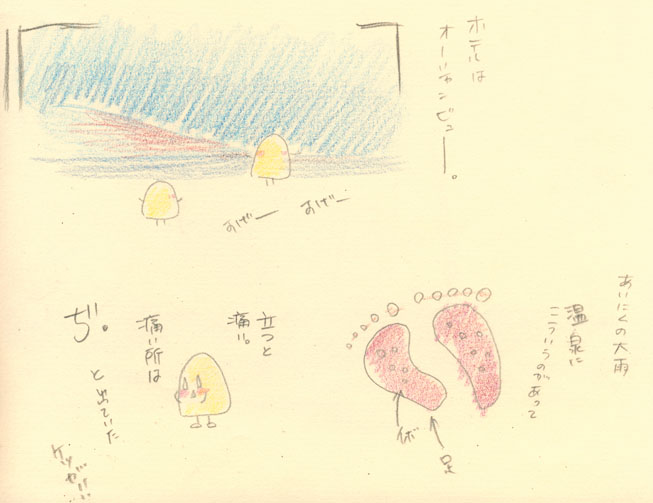 ホテルは
オーシャンビュー。
すげー すげー
あいにくの大雨
温泉に
こういうのがあって
イボ
足
立つと
痛い。
痛い所は
ぢ。
と出ていた